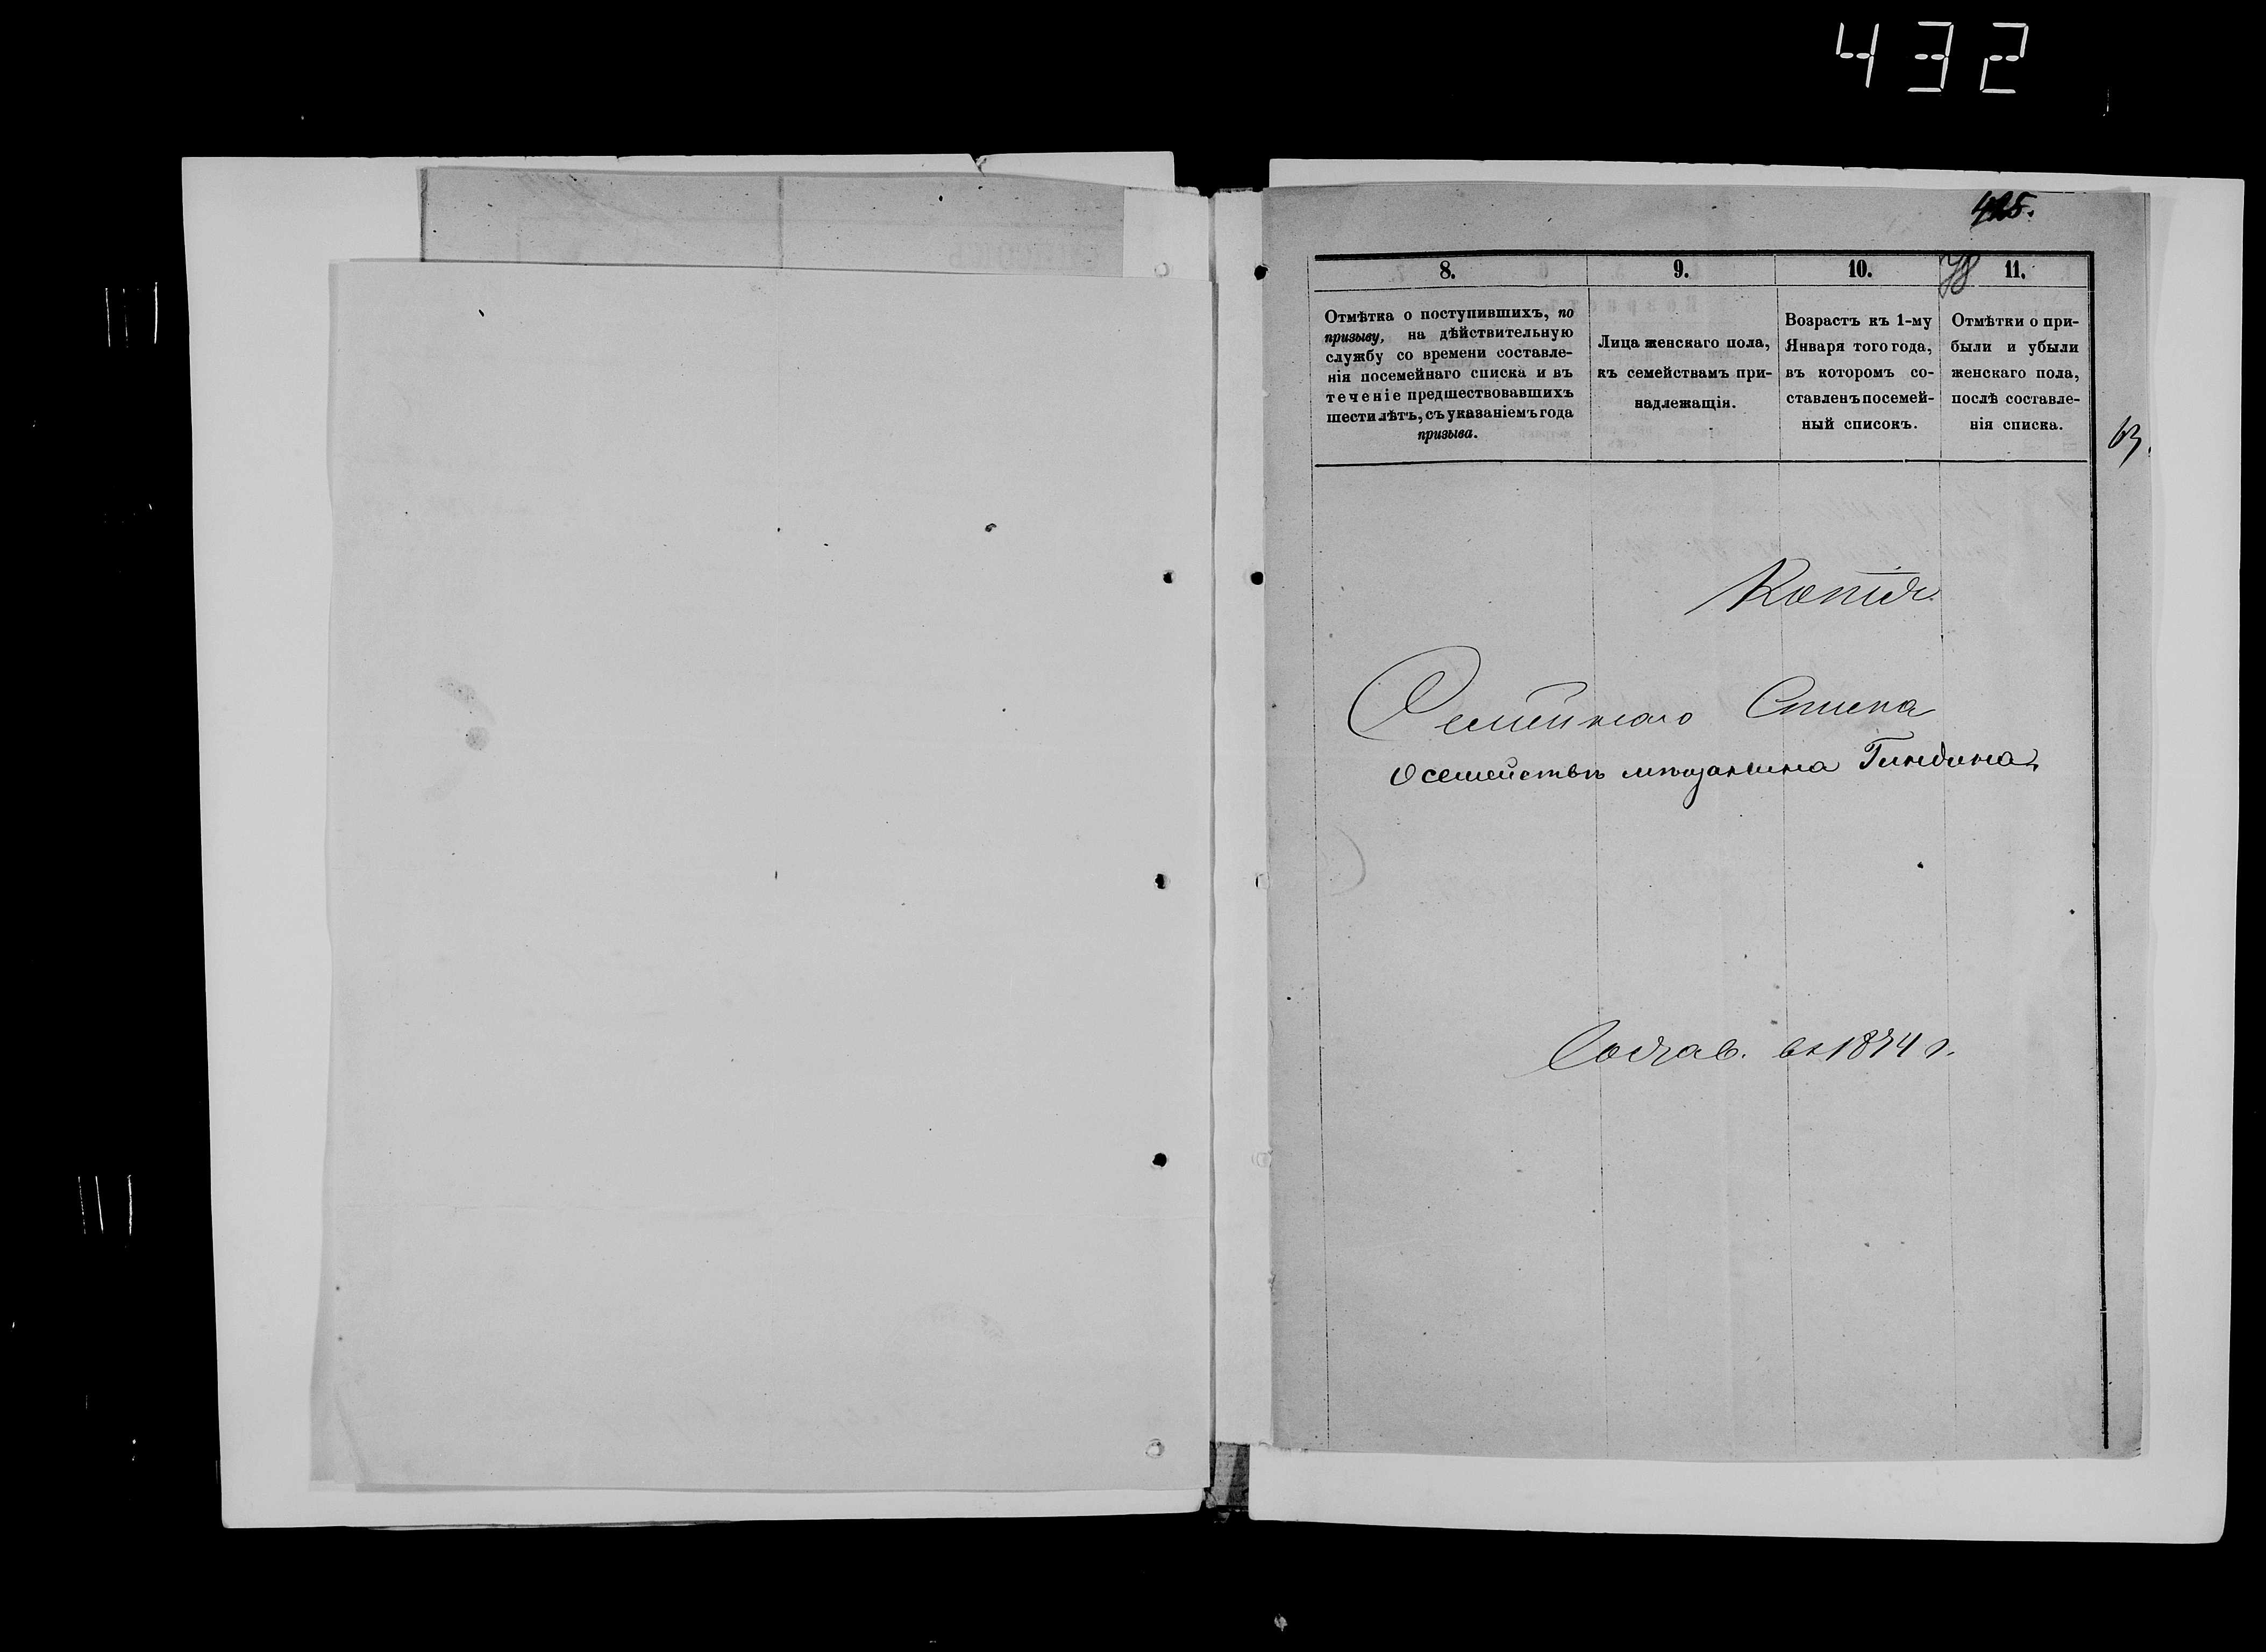 432
425.
8.
9.
10.
11.
Отмѣтка о поступившихъ, по
призыву, на дѣйствительную
службу со времени составле-
нія посемейнаго списка и въ
теченіе предшествовавшихъ
шести лѣтъ, съ указаніемъ года
призыва.
Лица женскаго пола,
къ семействамъ при-
надлежащія.
Возрастъ къ 1-му
Января того года,
въ которомъ со-
ставленъ посемей-
ный списокъ.
Отмѣтки о при-
были и убыли
женскаго пола,
послѣ составле-
нія списка.
63.
Копія
Семейнаго Списка
О семействѣ мѣщанина Гиндина
Состав. въ 1874 г.